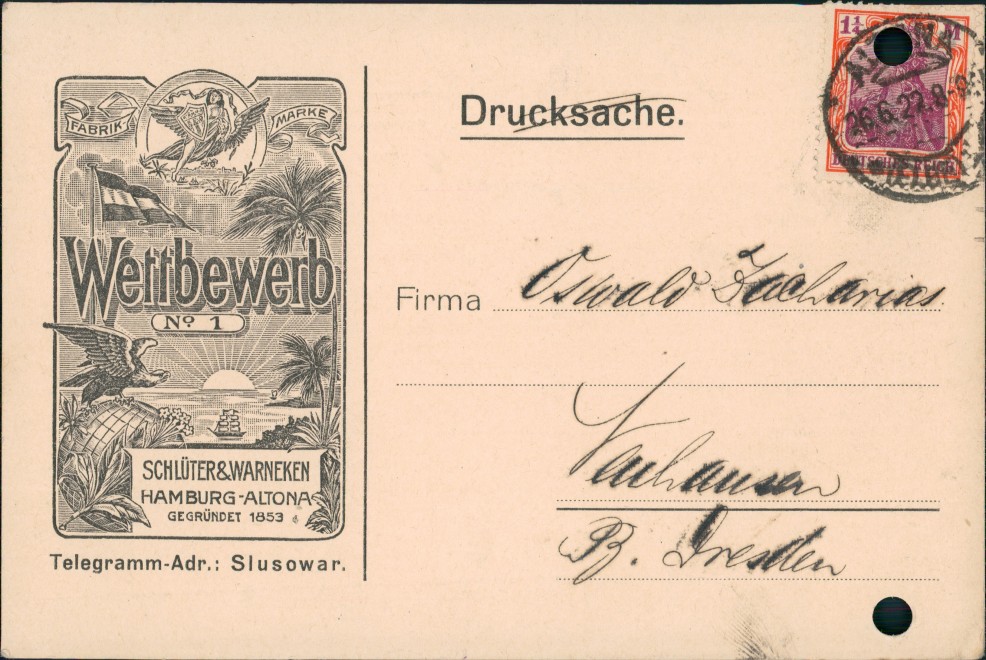 FABRIK MARKE
Wettbewerb
Nº 1
SCHLÜTER & WARNEKEN
HAMBURG-ALTONA
GEGRÜNDET 1853
Telegramm-Adr.: Slusowar.
Drucksache.
1¼ M
DEUTSCHES REICH
26.6.22.8-
Firma Oswald Zacharias.
Neuhausen
B. Dresden